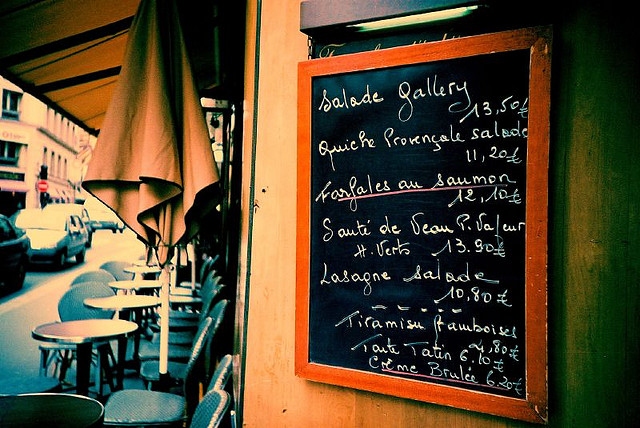 Salade Gallery
13,50€
Quiche Provençale salade
11,20€
Farfales au saumon
12,10€
Sauté de Veau P. Valeur
H. Verts 13.90€
Lasagne salade
10,80€
Tiramisu framboises
4,80€
Tarte Tatin 6,10€
Crème Brulée 6,20€